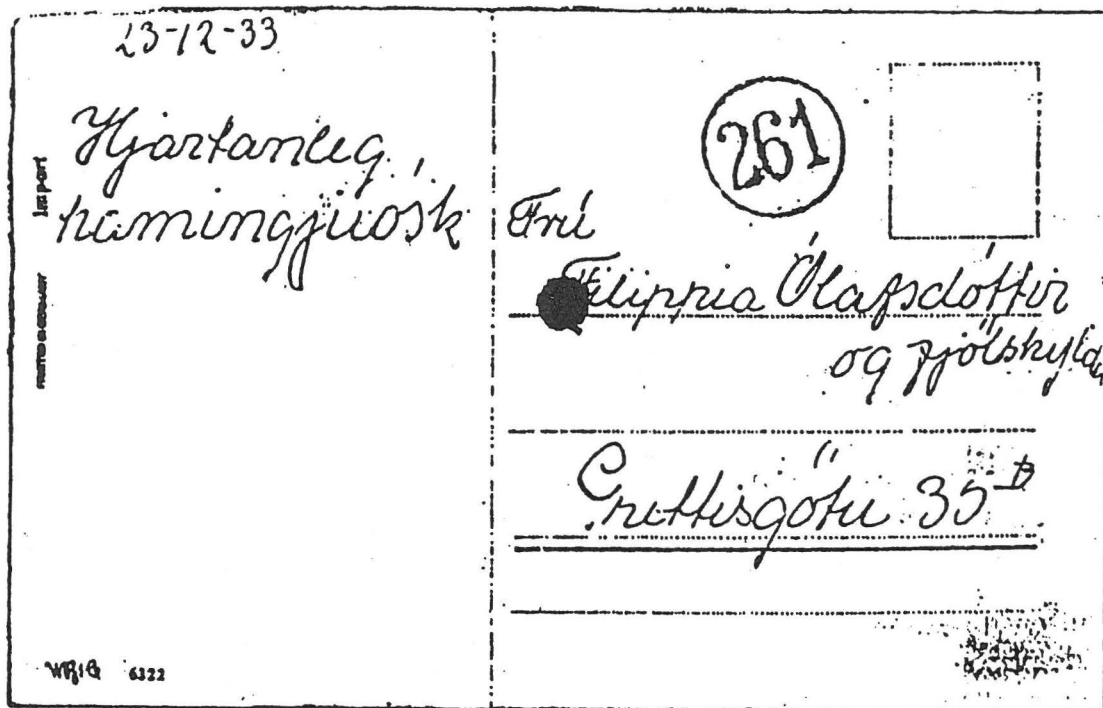 23-12-33
Hjartanleg
hamingjuósk
Import
PRINTED IN GERMANY
6322
261
Frú
Filippia Ólafsdóttir
og fjölskylda
Grettisgötu 35 B